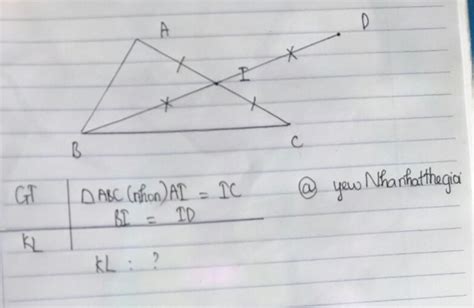 A
D
I
B
C
GT
ΔABC (nhọn) AI = IC
BI = ID
@ yew Nhanhatthegioi
KL
KL : ?